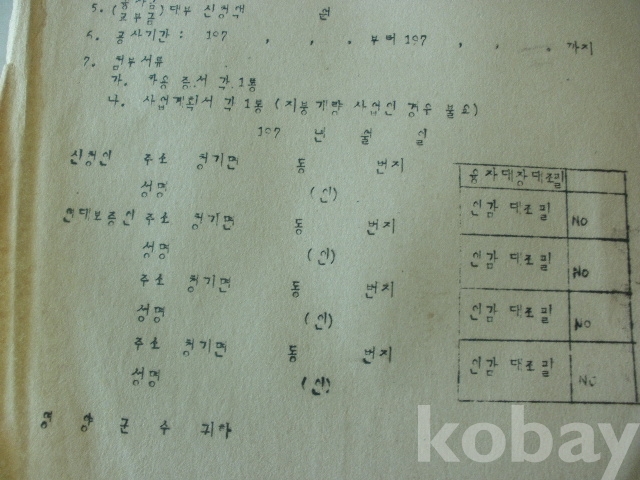 5. (융자금
보부금) 대부 신청액 원
6. 공사기간 : 197 , , . 부터 197 , , . 까지
7. 첨부서류
가. 차용 증서 각 1통
나. 사업계획서 각 1통 (지붕개량 사업인 경우 불요)
197 년 월 일
신청인 주소 청기면 동 번지
성명 (인)
연대보증인 주소 청기면 동 번지
성명 (인)
주소 청기면 동 번지
성명 (인)
주소 청기면 동 번지
성명 (인)
영양군수 귀하
융자대장대조필
인감 대조필 NO
인감 대조필 NO
인감 대조필 NO
인감 대조필 NO
kobay